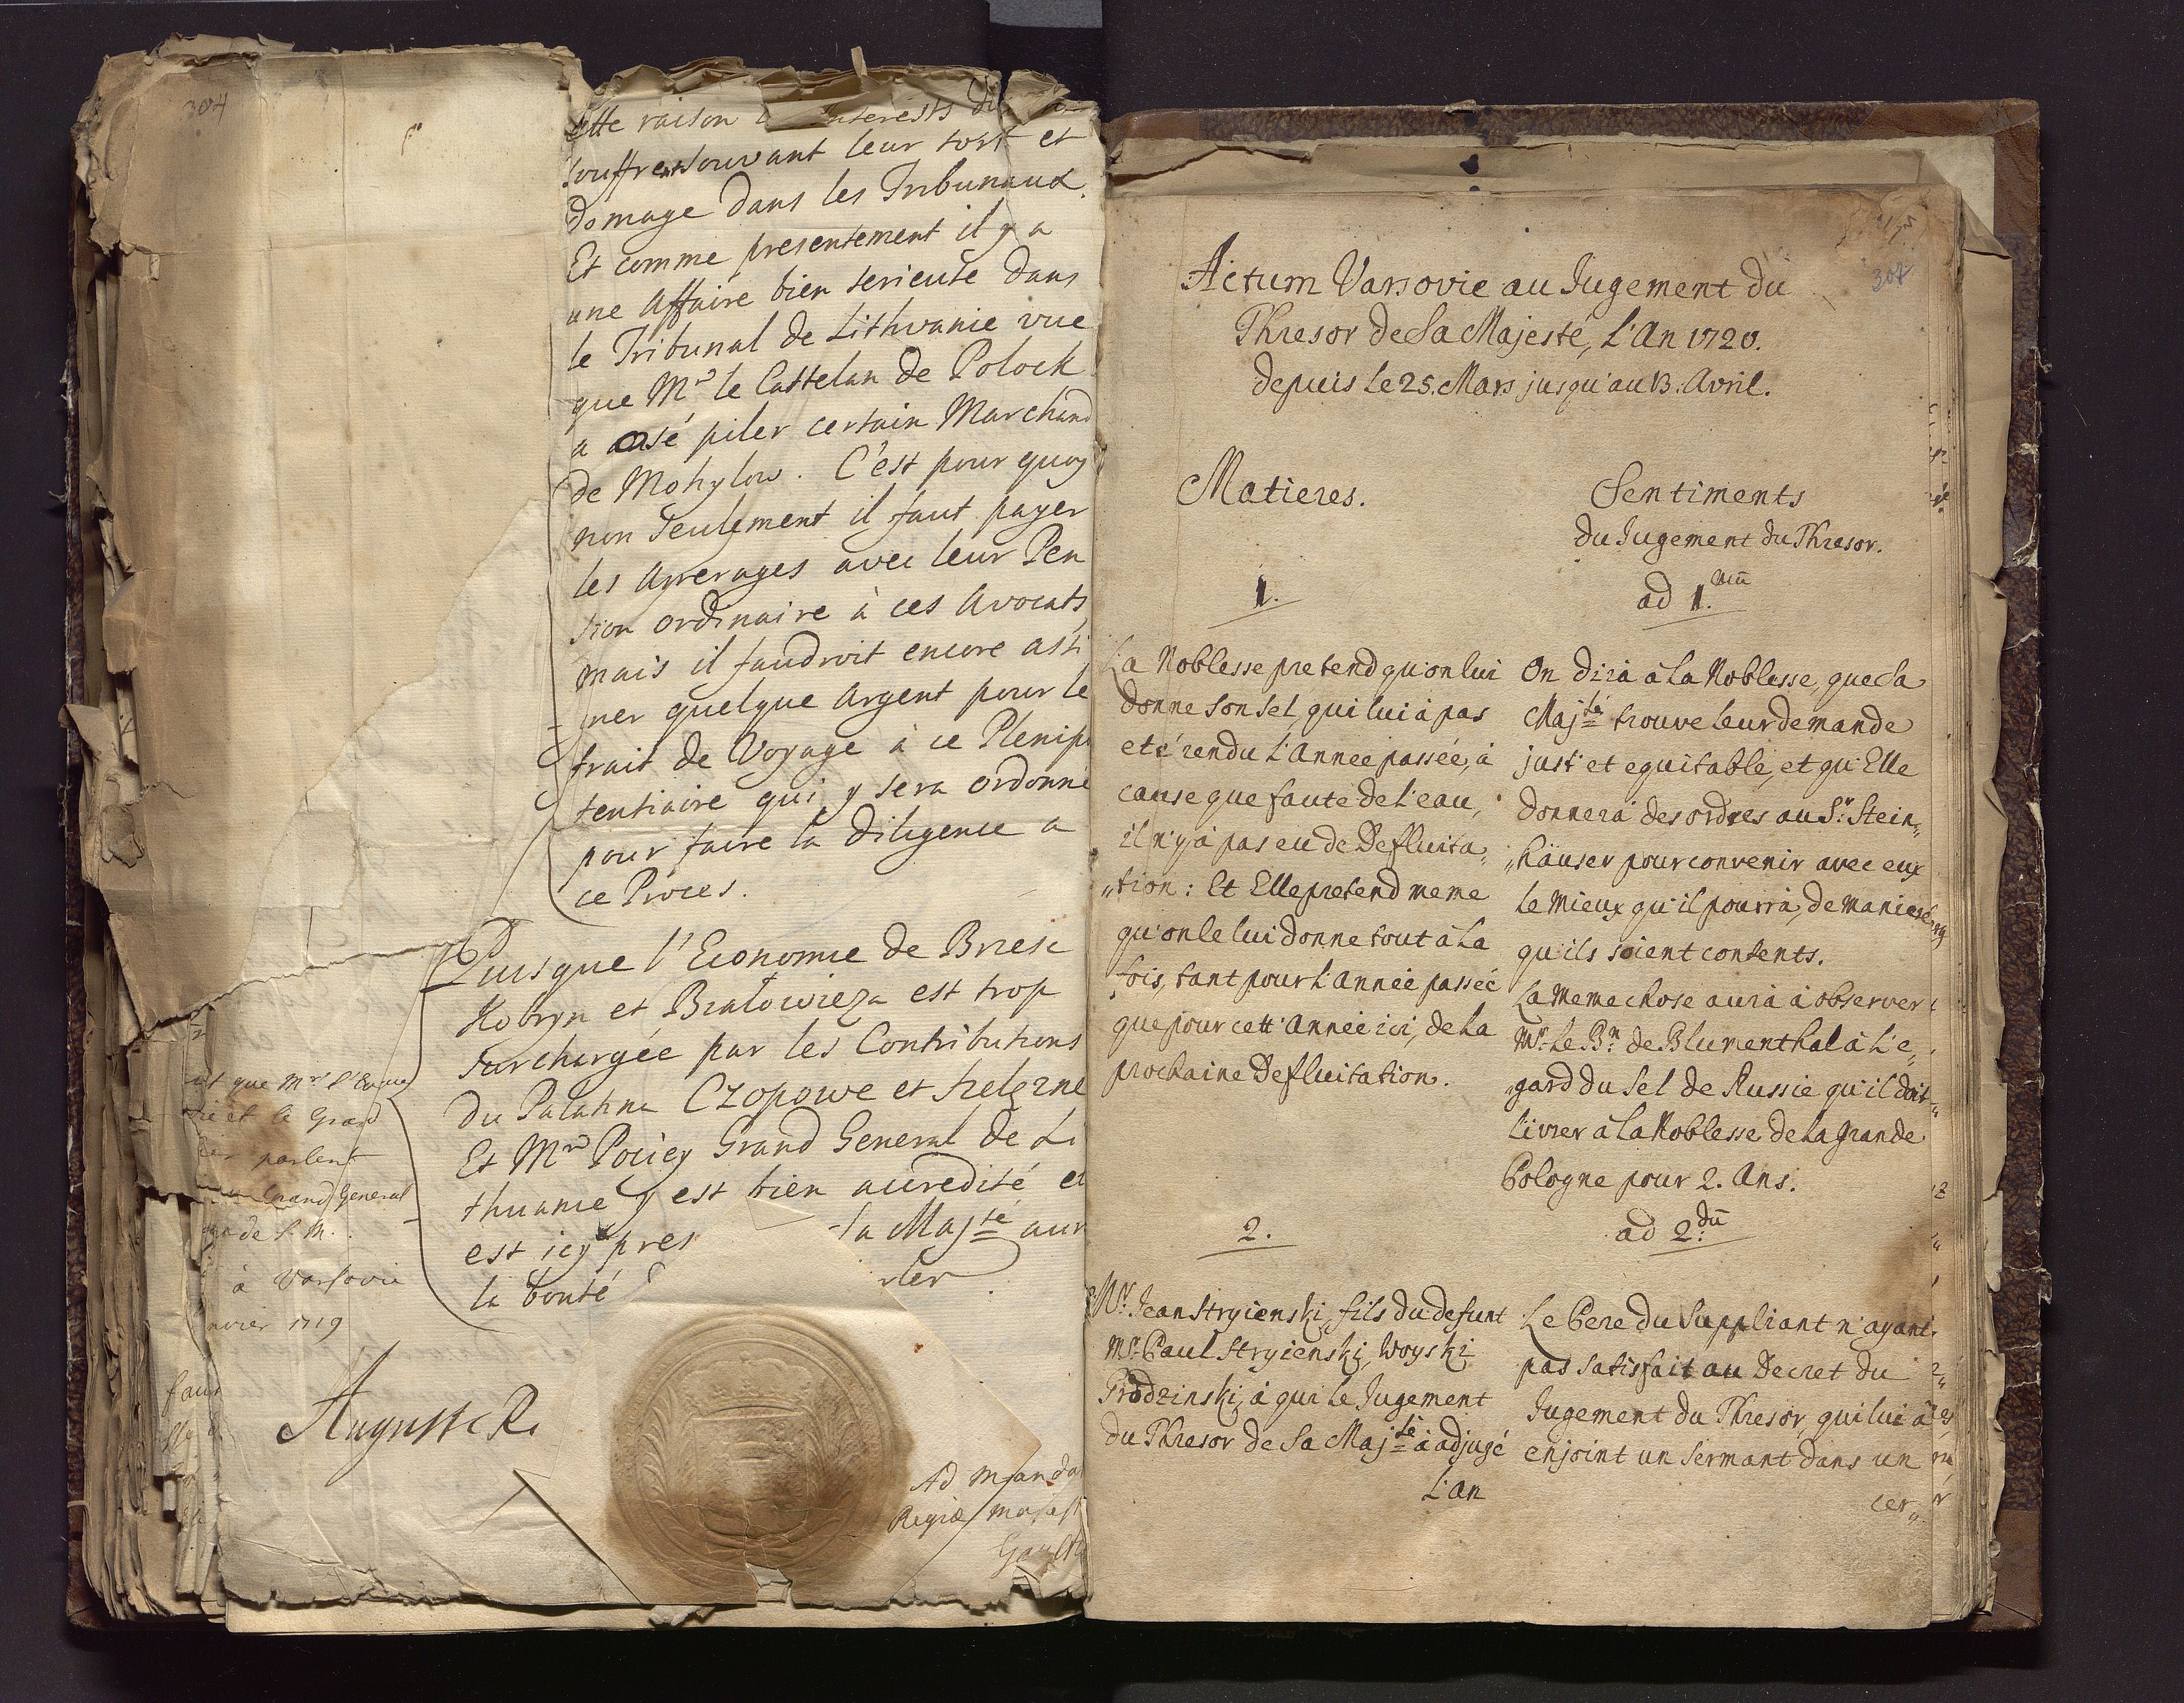 304
cette raison interests du
souffrent souvant leur tort et
domage dans les Tribunaux.
Et comme presentement il y a
une Affaire bien serieuse dans
le Tribunal de Lithvanie vue
que Mr le Castelan de Polock
a osé piler certain Marchand
de Mohylow. C'est pour quoy
non seulement il faut payer
les Arrerages avec leur Pen
sion ordinaire à ces Avocats
mais il faudroit encore assi
ner quelque Argent pour le
frait de Voyage à ce Plenipo
tentiaire qui y sera ordonné
pour faire la diligence a
ce Proces.
Puisque l'Economie de Brzesc
Kobryn et Bialowieza est trop
surchargée par les Contributions
du Palatina Czopowe et Szelezne
Et Mr Pociey Grand General de Li
thuanie y est bien accredité et
est icy pres sa Majté aur
la bonté rler
que Mr l'Eveque
et le Grand
parlent
Grand General
de S. M.
à Varsovie
nvier 1719
Auguste R.
Ad Manda
Regiæ Majest
307
Actum Varsovie au Jugement du
Thresor de Sa Majesté, L'An 1720.
depuis le 25. Mars jusqu'au 13. Avril.
Matieres.
1.
La Noblesse pretend qu'on lui
donne son sel, qui lui à pas
eté rendu l'Année passée, à
cause que faute de l'eau,
il n'y à pas eu de Defluita„
„tion: Et Elle pretend meme
qu'on le lui donne tout à la
fois, tant pour l'Année passée
que pour cett' Année ici, de la
prochaine Defluitation.
2.
Mr. Jean Stryienski, fils du defunt
Mr. Paul Stryienski, Woyski
Grodzinski, à qui le Jugement
du Thresor de Sa Majté à adjugé
L'An
Sentiments
du Jugement du Thresor.
ad 1.mũ
On dira à la Noblesse, que Sa
Majté trouve leur demande
just' et equitable, et qu'Elle
donnera des ordres au Sr. Stein„
„häuser pour convenir avec eux
le mieux qu'il pourra, de maniere
qu'ils soient contents.
La meme chose aura à observer
Mr. le Bn. de Blumenthal à l'e„
gard du Sel de Russie qu'il doit
livrer à la Noblesse de la Grande
Pologne pour 2. Ans.
ad 2.dũ
Le Pere du Suppliant n'ayant
pas satisfait au Decret du
Jugement du Thresor, qui lui à
enjoint un serment dans un
cer„